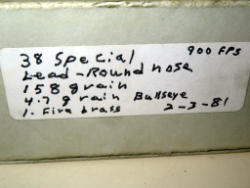 900 FPS
38 Special
Lead-Round nose
158 grain
4.7 grain Bullseye
1. Fire brass 2-3-81